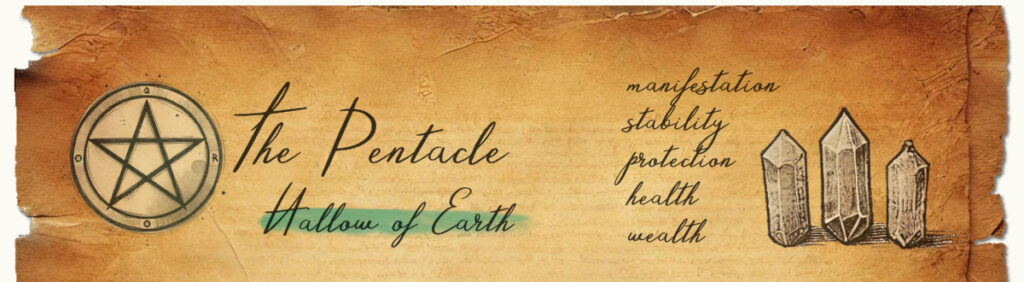 The Pentacle
Hallow of Earth
manifestation
stability
protection
health
wealth